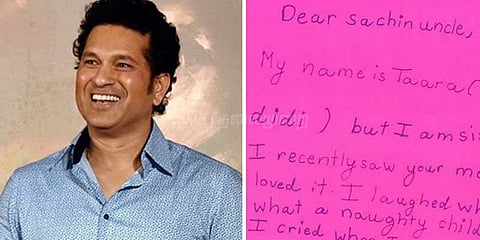 Dear sachin uncle,
My name is Taara(
didi) but I am si
I recently saw your mo
loved it. I laughed wh
what a naughty child
I cried when I